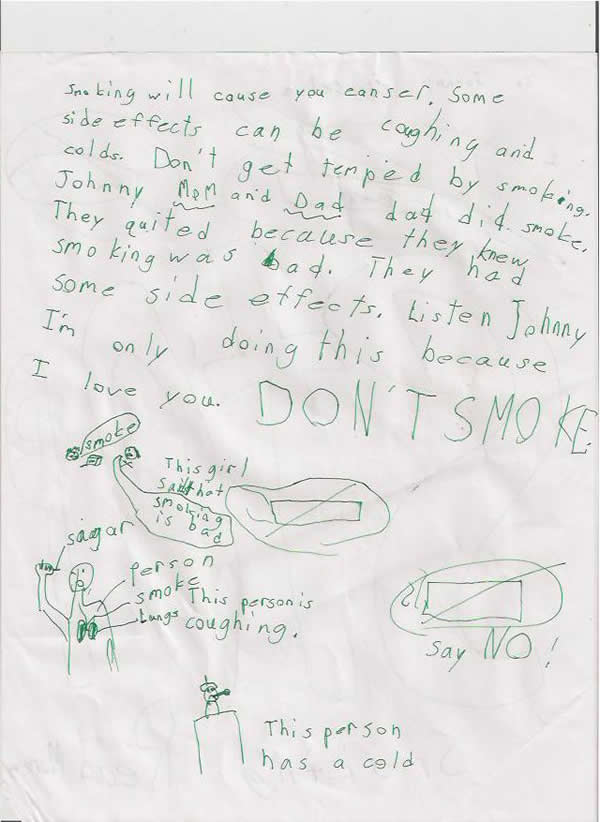 Smoking will cause you canser. Some
side effects can be coughing and
colds. Don't get temped by smoking.
Johnny MoM and Dad dad did smoke.
They quited because they knew
smoking was bad. They had
some side effects. Listen Johnny
I'm only doing this because
I love you. DON'T SMOKE
smoke
This girl
said that
smoking
is bad
sigar
person
smoke
Lungs
This person is
coughing.
say NO!
This person
has a cold